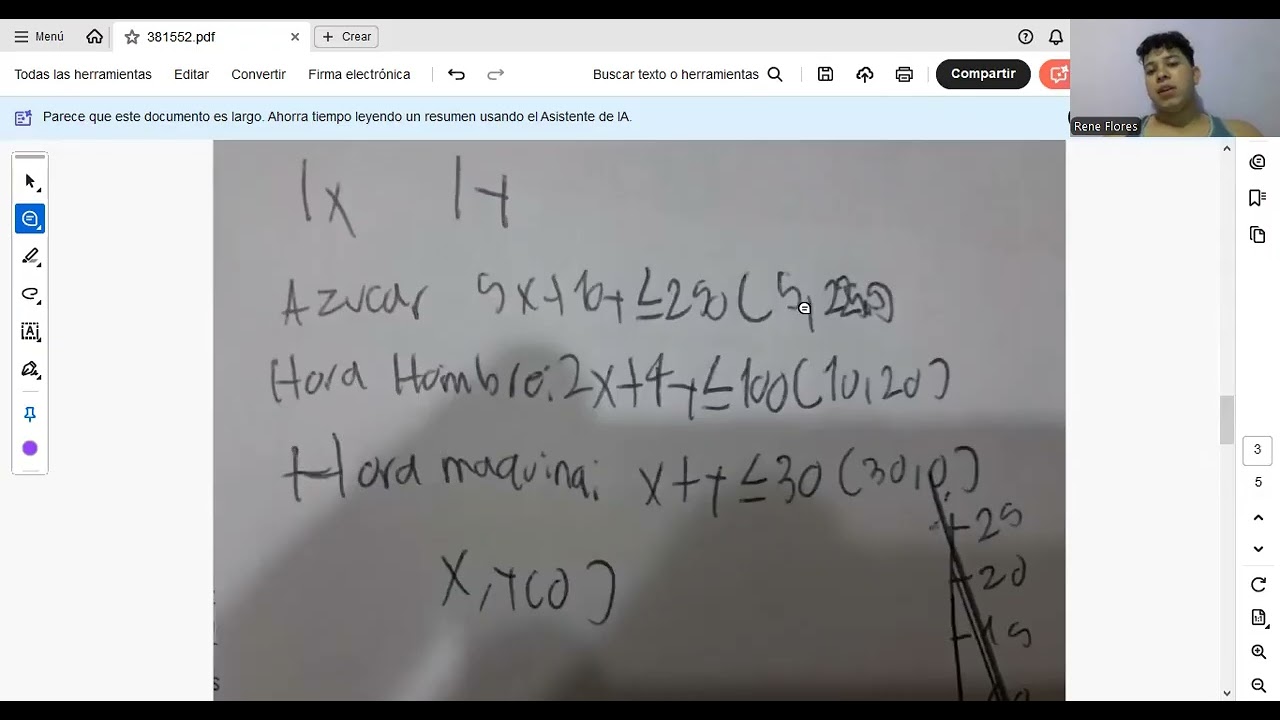 Menú
381552.pdf
Crear
Todas las herramientas
Editar
Convertir
Firma electrónica
Buscar texto o herramientas
Compartir
Parece que este documento es largo. Ahorra tiempo leyendo un resumen usando el Asistente de IA.
Rene Flores
1x 1y
Azucar 5x+10y≤250(5,
Hora Hombre: 2x+4y≤100(10,20)
Hora maquina: x+y≤30(30,0)
25
20
15
x,y(0)
3
5